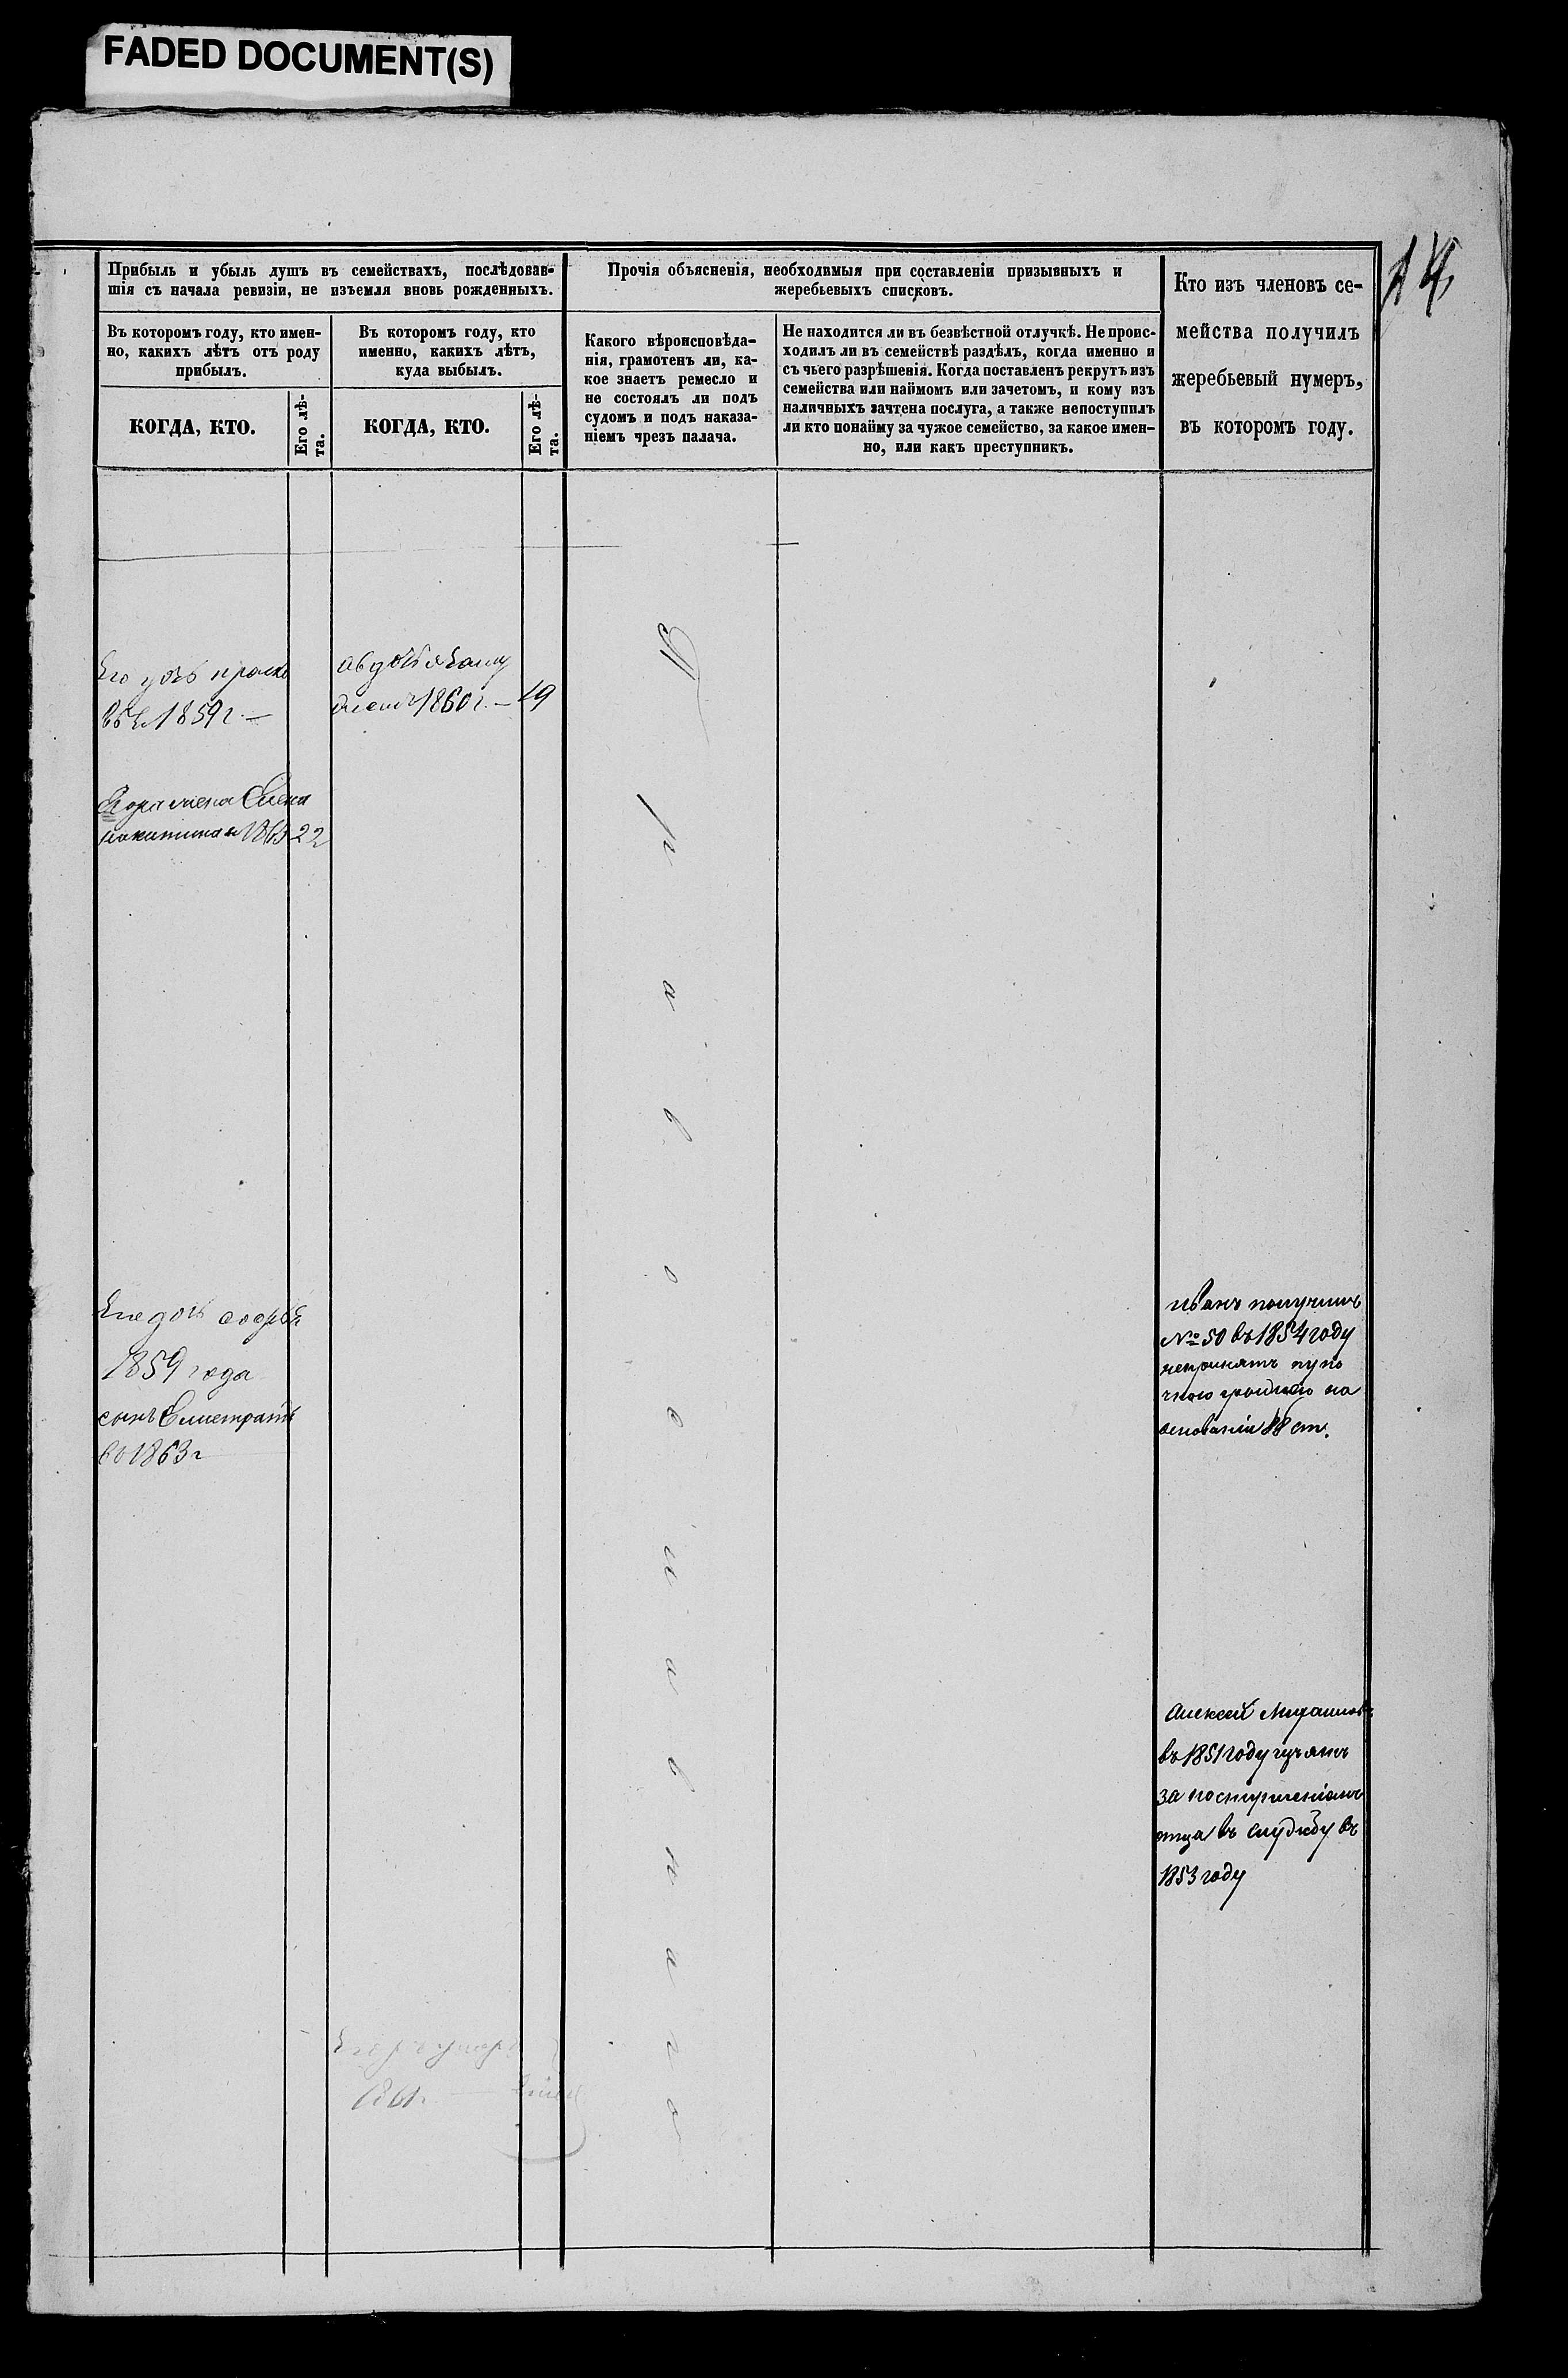 FADED DOCUMENT(S)
14
Прибыль и убыль душъ въ семействахъ, послѣдовав-
шія съ начала ревизіи, не изъемля вновь рожденныхъ.
Въ которомъ году, кто имен-
но, какихъ лѣтъ отъ роду
прибылъ.
КОГДА, КТО.
Его лѣ-
та.
Въ которомъ году, кто
именно, какихъ лѣтъ,
куда выбылъ.
КОГДА, КТО.
Его лѣ-
та.
Прочія объясненія, необходимыя при составленіи призывныхъ и
жеребьевыхъ списковъ.
Какого вѣроисповѣда-
нія, грамотенъ ли, ка-
кое знаетъ ремесло и
не состоялъ ли подъ
судомъ и подъ наказа-
ніемъ чрезъ палача.
Не находится ли въ безвѣстной отлучкѣ. Не проис-
ходилъ ли въ семействѣ раздѣлъ, когда именно и
съ чьего разрѣшенія. Когда поставленъ рекрутъ изъ
семейства или наймомъ или зачетомъ, и кому изъ
наличныхъ зачтена послуга, а также непоступилъ
ли кто понайму за чужое семейство, за какое имен-
но, или какъ преступникъ.
Кто изъ членовъ се-
мейства получилъ
жеребьевый нумеръ,
въ которомъ году.
Его
1859г. —
Авдотья
1860г. — 19
жена Елена
22
Его дочь
1859 года
сынъ
во 1863г
П
р
а
в
о
с
л
а
в
н
а
г
о
Иванъ получилъ
№ 50 въ 1854 году
непринятъ
основаніи 88 ст.
Алексей
въ 1851 году
за поступленіемъ
отца въ службу въ
1853 году
1861г.